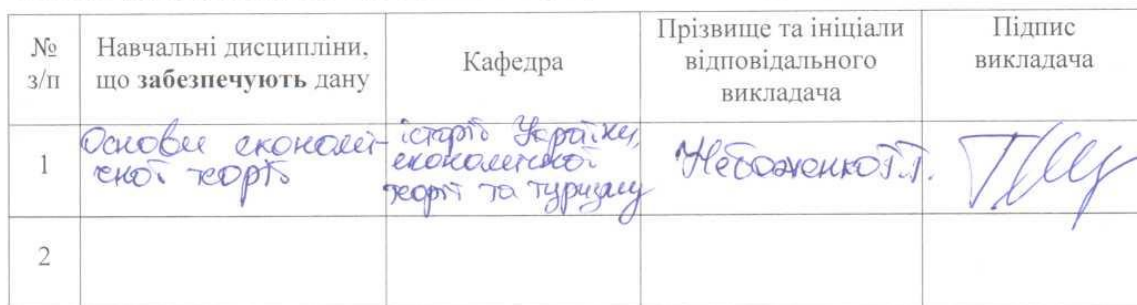 № з/п
Навчальні дисципліни, що забезпечують дану
Кафедра
Прізвище та ініціали відповідального викладача
Підпис викладача
1
Основи економі-
чної теорії
історії України,
економічної
теорії та туризму
Небоженко Т.Т.
2